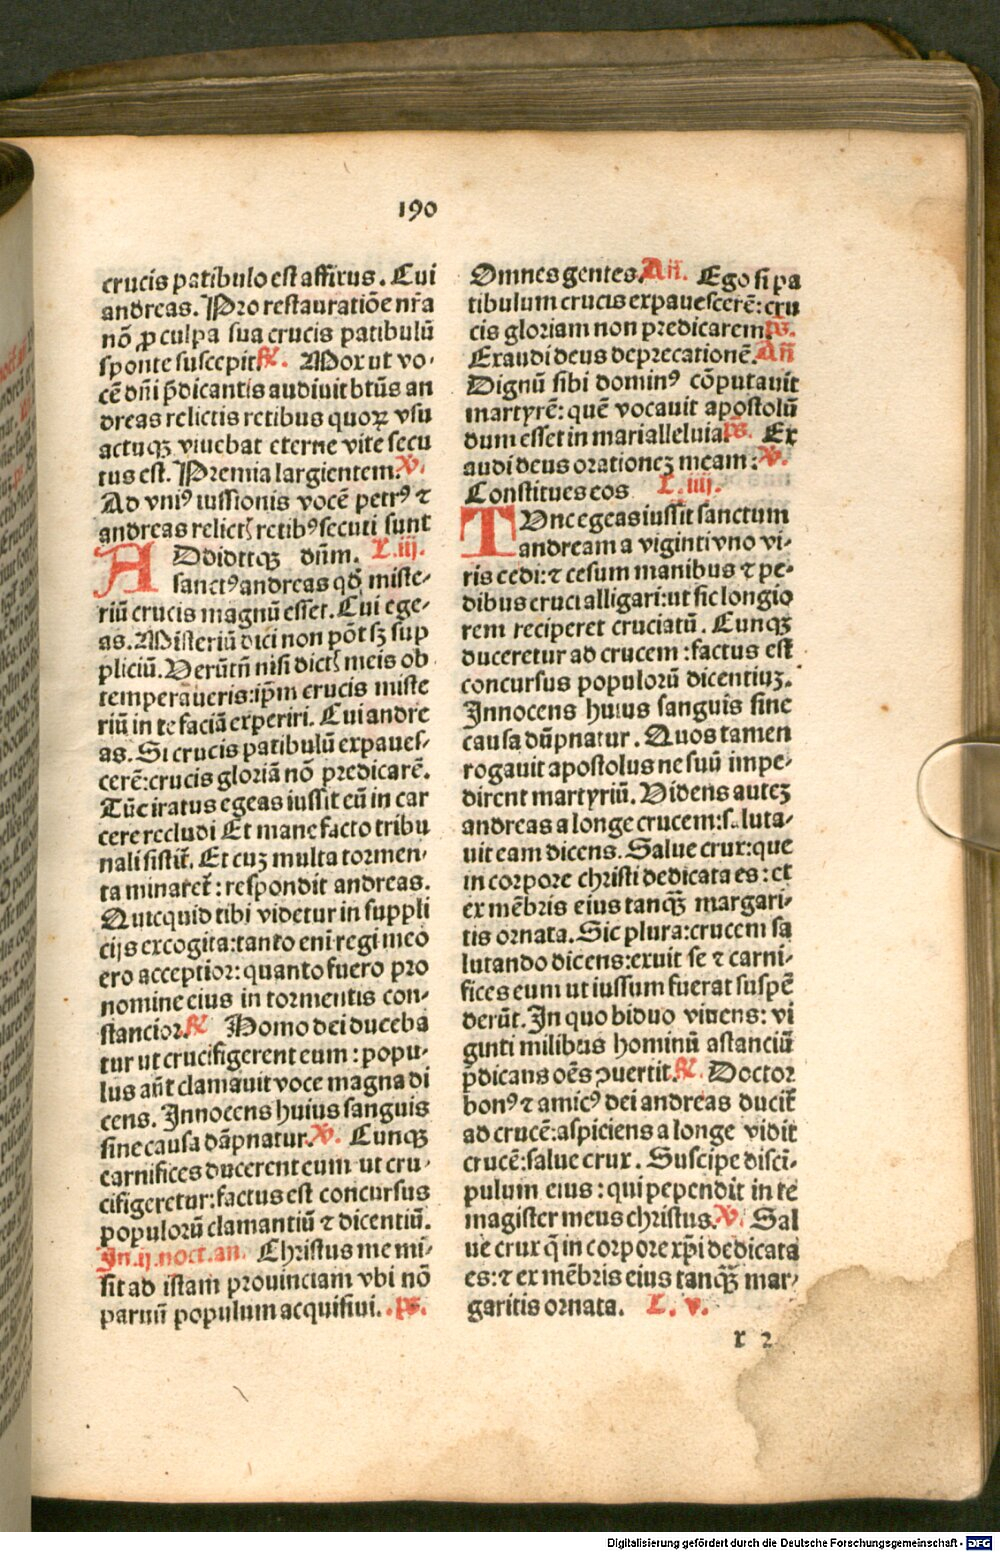 190
crucis patibulo est affixus. Cui
andreas. Pro restauratiōe nr̄a
nō ꝓ culpa sua crucis patibulū
sponte suscepit ℟. Mox ut vo-
cē dn̄i p̄dicantis audiuit btūs an
dreas relictis retibus quoꝝ vsu
actuqꝫ viuebat eterne vite secu
tus est. Premia largientem. ℣.
Ad vniꝰ iussionis vocē petrꝰ ⁊
andreas relictꝭ retibꝰ secuti sunt
ADdiditqꝫ dn̄m. L. iij.
sanctꝰ andreas qd̄ miste-
riū crucis magnū esset. Cui ege-
as. Misteriū dici non pōt sꝫ sup
pliciū. Verūtn̄ nisi dictꝭ meis ob
temperaueris: ip̄m crucis miste
riū in te faciā experiri. Cui andre
as. Si crucis patibulū expaues-
cerē: crucis gloriā nō predicarē.
Tūc iratus egeas iussit eū in car
cere recludi Et mane facto tribu
nali sistit̄. Et cuꝫ multa tormen-
ta minaret̄: respondit andreas.
Quicquid tibi videtur in suppli
cijs excogita: tanto eni regi meo
ero acceptior: quanto fuero pro
nomine eius in tormentis con-
stancior. ℟ Homo dei duceba
tur ut crucifigerent eum: popu-
lus aūt clamauit voce magna di
cens. Innocens huius sanguis
sine causa dāpnatur. ℣. Cunqꝫ
carnifices ducerent eum ut cru-
cifigeretur: factus est concursus
populorū clamantiū ⁊ dicentiū.
In .ij. noct. an. Christus me mi-
sit ad istam prouinciam vbi nō
paruū populum acquisiui. . ps.
Omnes gentes. An̄. Ego si pa
tibulum crucis expauescerē: cru
cis gloriam non predicarem. ps.
Exaudi deus deprecationē. An̄
Dignū sibi dominꝰ cōputauit
martyrē: quē vocauit apostolū
dum esset in mari alleluia. ps. Ex
audi deus orationeꝫ meam: ℣.
Constitues eos L. iiij.
TVnc egeas iussit sanctum
andream a viginti vno vi-
ris cedi: ⁊ cesum manibus ⁊ pe-
dibus cruci alligari: ut sic longio
rem reciperet cruciatū. Cunqꝫ
duceretur ad crucem: factus est
concursus populorū dicentiuꝫ.
Innocens huius sanguis sine
causa dāpnatur. Quos tamen
rogauit apostolus ne suū impe-
dirent martyriū. Videns auteꝫ
andreas a longe crucem: saluta-
uit eam dicens. Salue crux: que
in corpore christi dedicata es: et
ex mēbris eius tanqꝫ̄ margari-
tis ornata. Sic plura: crucem sa
lutando dicens: exuit se ⁊ carni-
fices eum ut iussum fuerat suspē
derūt. In quo biduo viuens: vi
ginti milibus hominū astanciū
p̄dicans oēs ꝯuertit. ℟. Doctor
bonꝰ ⁊ amicꝰ dei andreas ducit̄
ad crucē: aspiciens a longe vidit
crucē: salue crux. Suscipe disci-
pulum eius: qui pependit in te
magister meus christus. ℣. Sal
ue crux q̄ in corpore xp̄i dedicata
es: ⁊ ex mēbris eius tanqꝫ̄ mar-
garitis ornata. L. v.
x 2
Digitalisierung gefördert durch die Deutsche Forschungsgemeinschaft - DFG